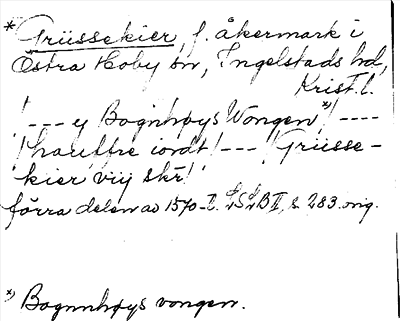 *Grüssekier, f. åkermark i
Östra Hoby sn, Ingelstads hd,
Krist. l.
! --- y Bognhøys Wongen *)! ----
! hareffre iordt! --- ! Grüsse-
kier viij skr!
förra delen av 1570-t. LSLB II, s. 283. orig.
*) Bognnhøys vongen.